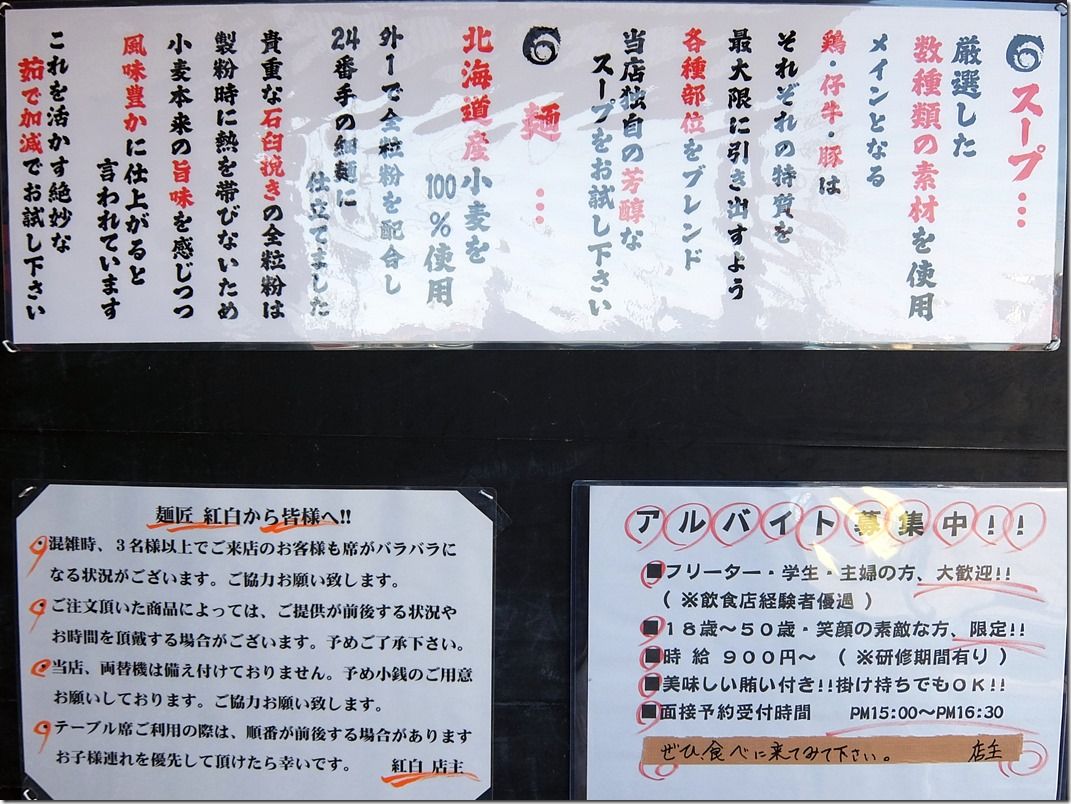 スープ…
厳選した
数種類の素材を使用
メインとなる
鶏・仔牛・豚は
それぞれの特質を
最大限に引き出すよう
各種部位をブレンド
当店独自の芳醇な
スープをお試し下さい
麺…
北海道産小麦を
100%使用
外1で全粒粉を配合し
24番手の細麺に
仕立てました
貴重な石臼挽きの全粒粉は
製粉時に熱を帯びないため
小麦本来の旨味を感じつつ
風味豊かに仕上がると
言われています
これを活かす絶妙な
茹で加減でお試し下さい
麺匠 紅白から皆様へ!!
・混雑時、3名様以上でご来店のお客様も席がバラバラに
なる状況がございます。ご協力お願い致します。
・ご注文頂いた商品によっては、ご提供が前後する状況や
お時間を頂戴する場合がございます。予めご了承下さい。
・当店、両替機は備え付けておりません。予め小銭のご用意
お願いしております。ご協力お願い致します。
・テーブル席ご利用の際は、順番が前後する場合があります
お子様連れを優先して頂けたら幸いです。 紅白 店主
アルバイト募集中!!
■フリーター・学生・主婦の方、大歓迎!!
(※飲食店経験者優遇)
■18歳~50歳・笑顔の素敵な方、限定!!
■時給 900円~ (※研修期間有り)
■美味しい賄い付き!!掛け持ちでもOK!!
■面接予約受付時間 PM15:00~PM16:30
ぜひ、食べに来てみて下さい。 店主